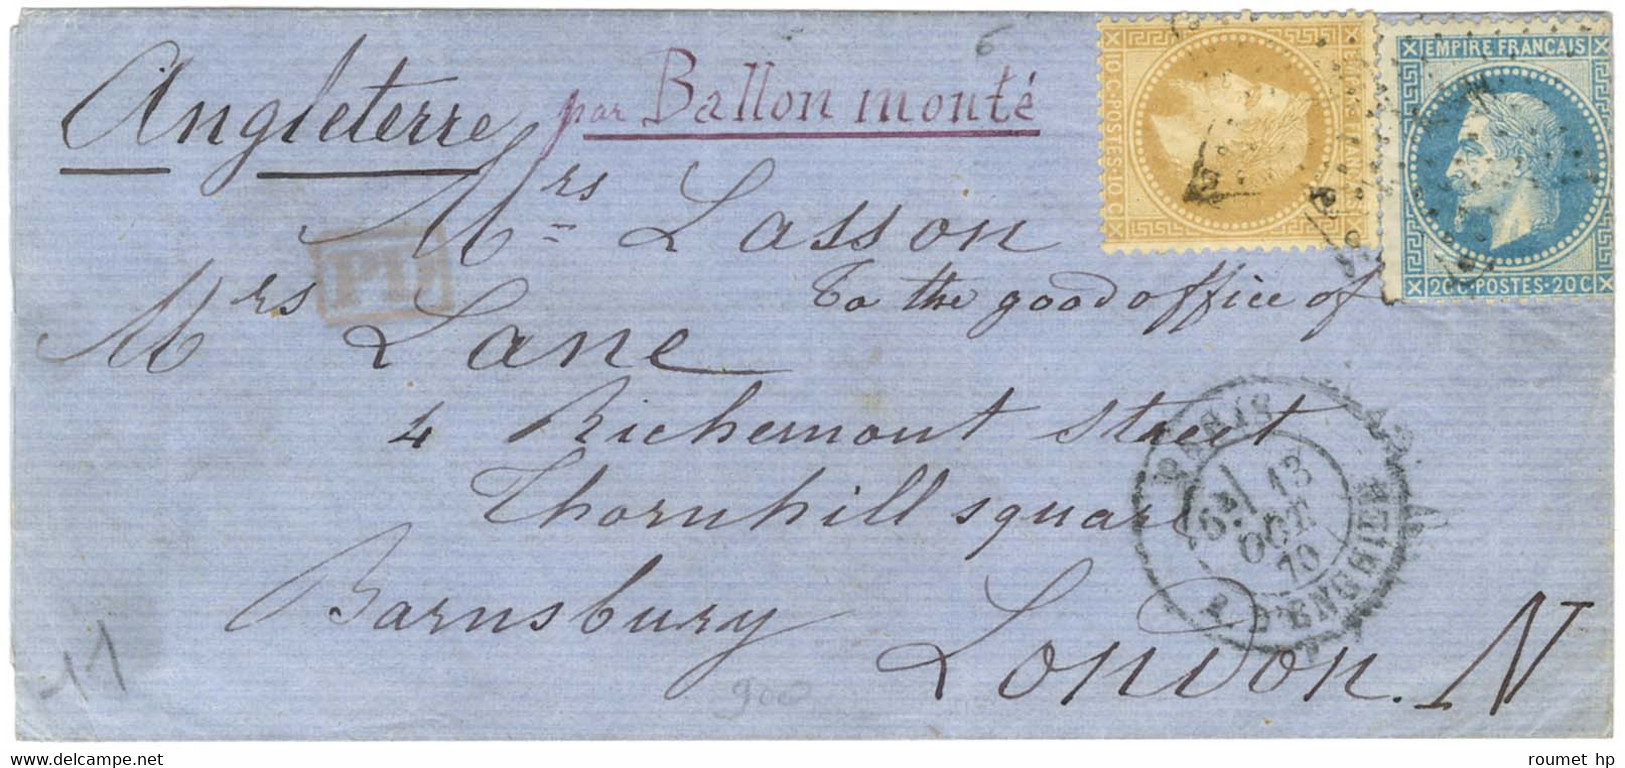 Angleterre par Ballon monté
Mrs Lasson
To the good office of
Mrs Lane
4 Richemont Street
Thornhill square
Barnsbury
London. N
PD
10 C.POSTES.10 C
EMPIRE FRANÇAIS
20C.POSTES.20C
PARIS
13
OCT
70
R. D'ENGHIEN
900
roumet hp